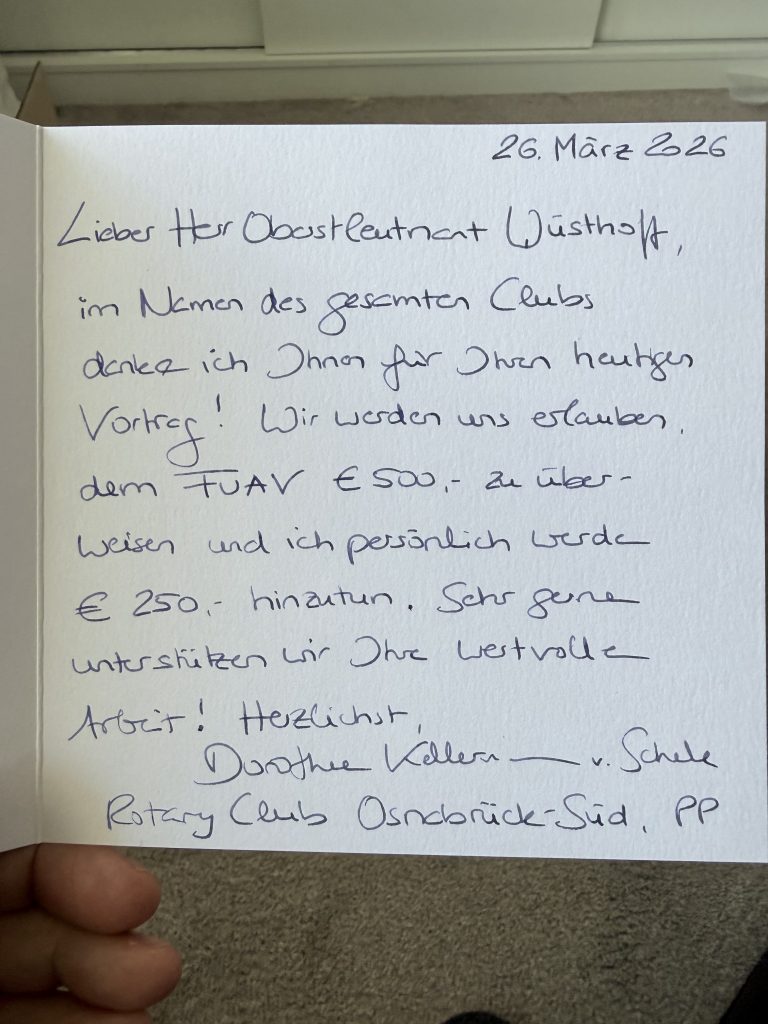 26. März 2026
Lieber Herr Oberstleutnant Wüsthoff,
im Namen des gesamten Clubs
danke ich Ihnen für Ihren heutigen
Vortrag! Wir werden uns erlauben,
dem FUAV € 500,- zu über-
weisen und ich persönlich werde
€ 250,- hinzutun. Sehr gerne
unterstützen wir Ihre wertvolle
Arbeit! Herzlichst,
Dorothee v. Schele
Rotary Club Osnabrück-Süd, PP